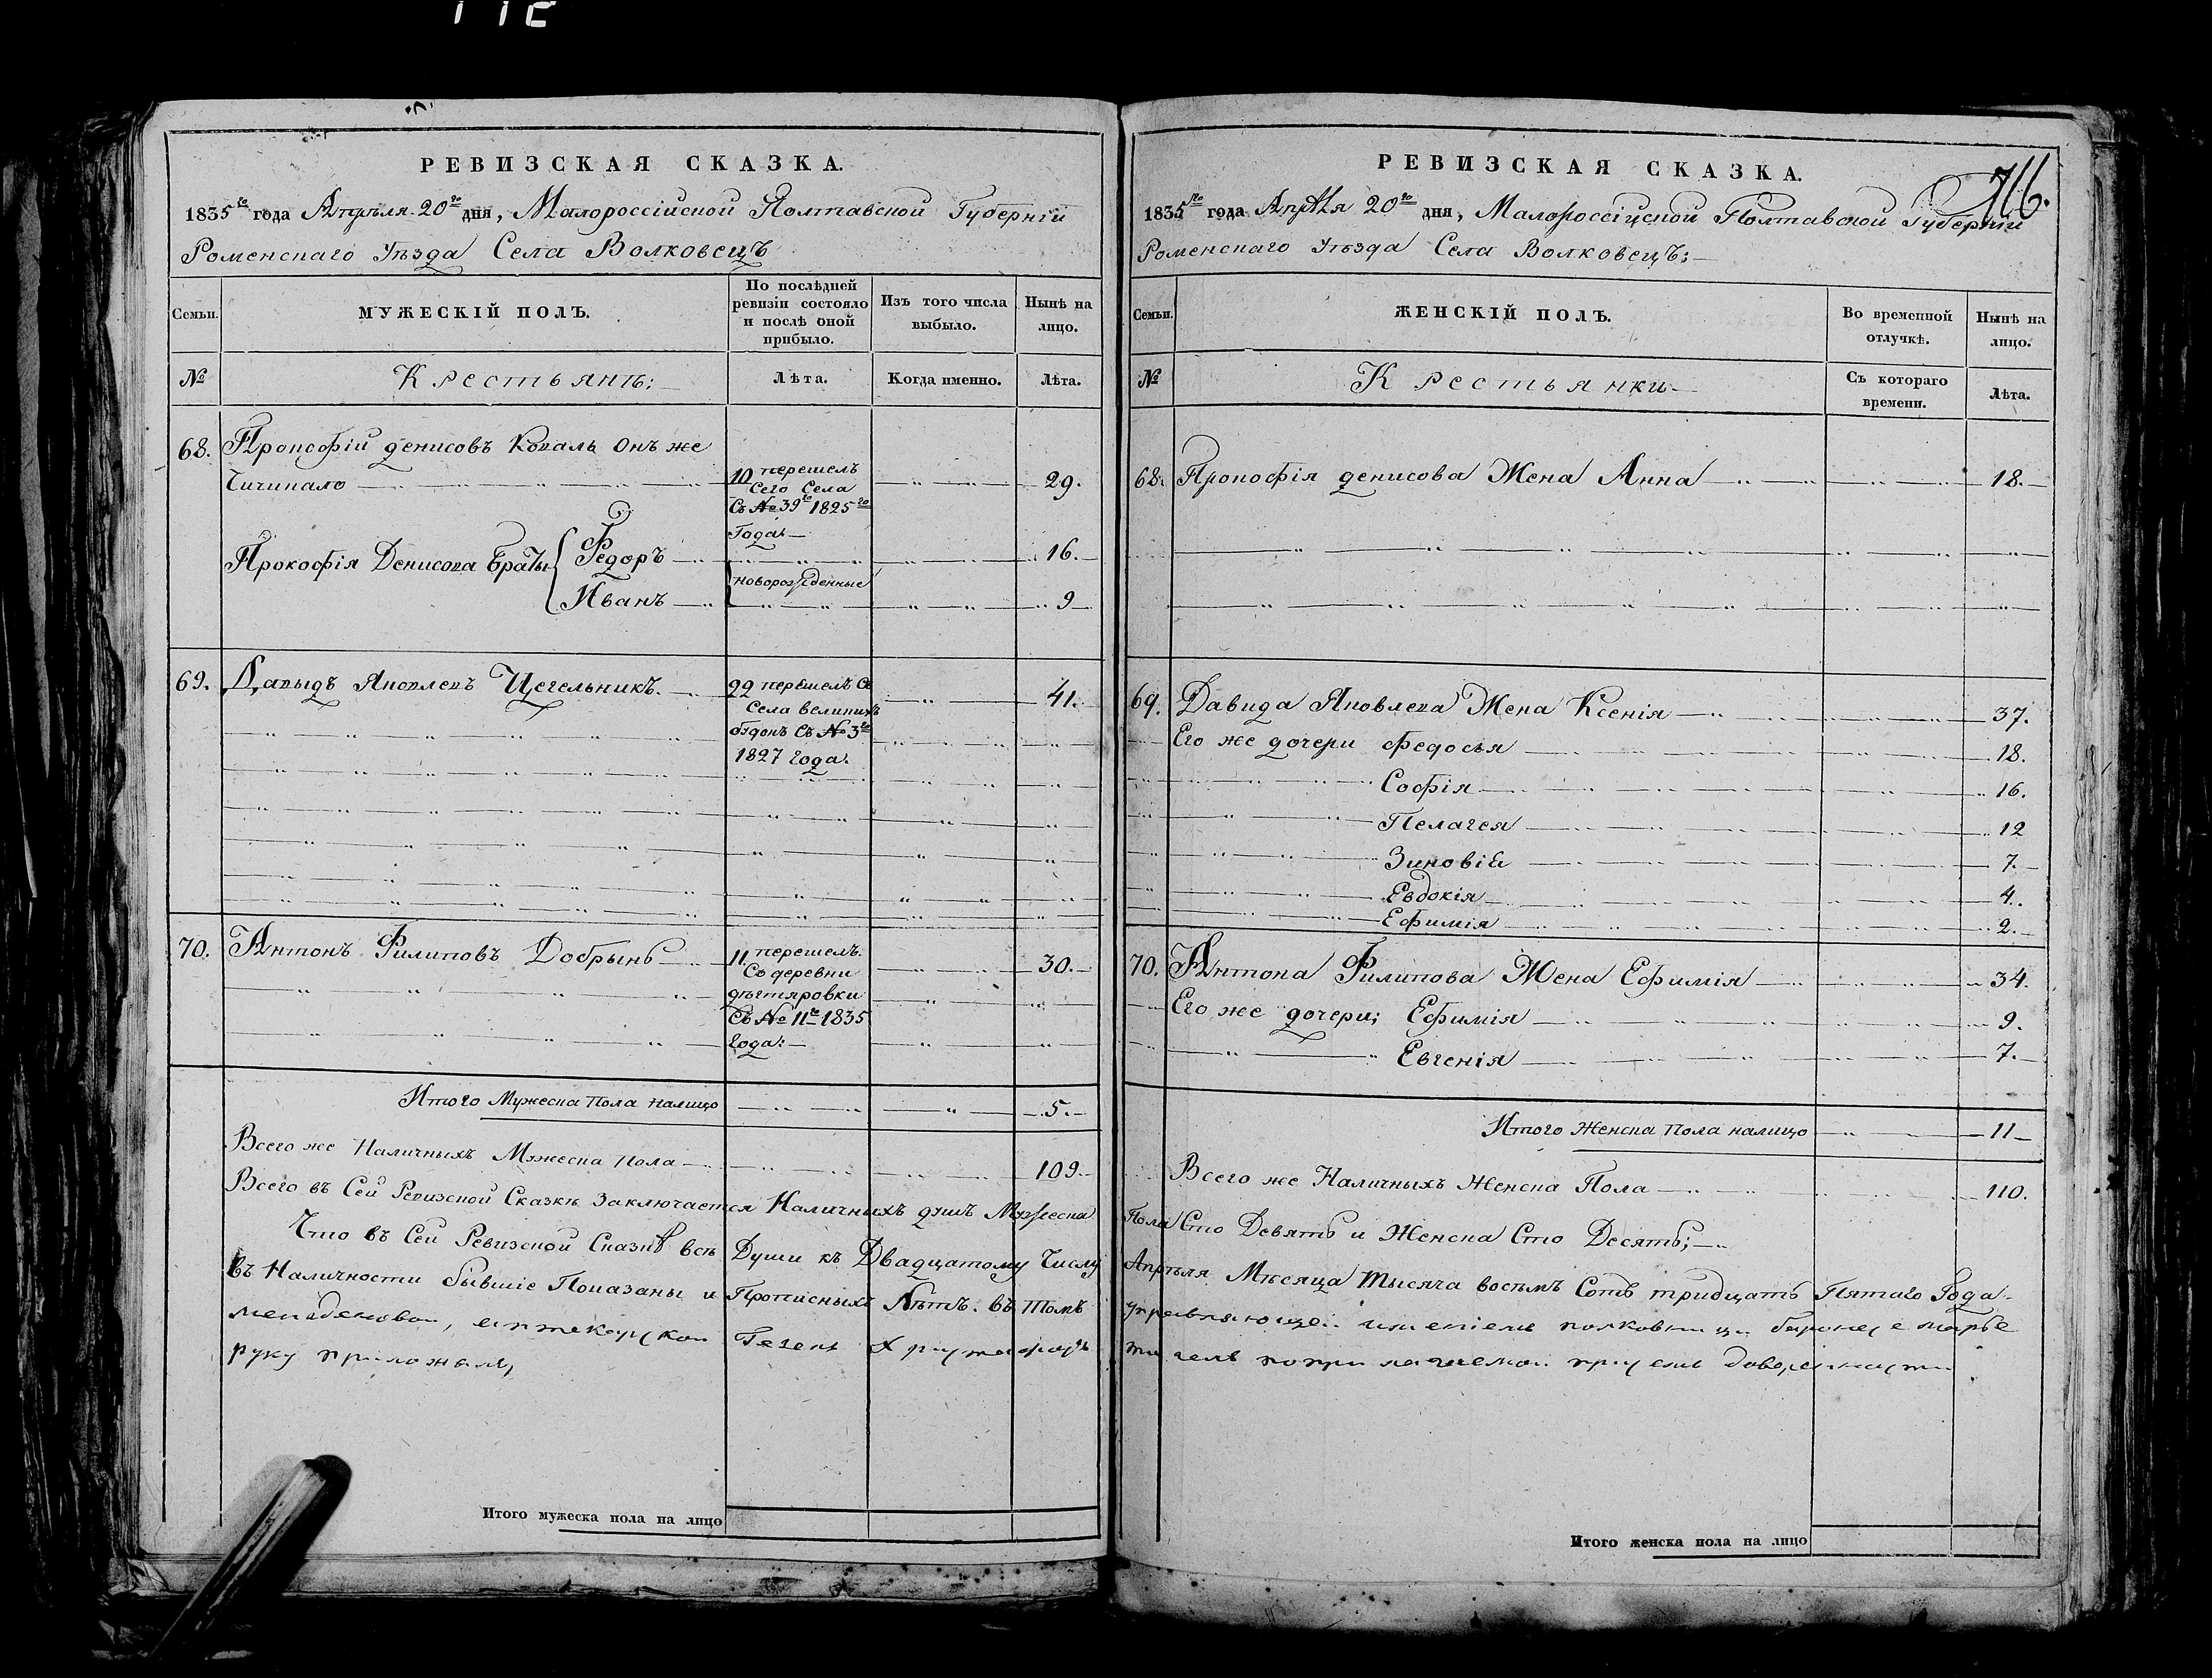 РЕВИЗСКАЯ СКАЗКА.
1835го года Апрѣля 20го дня, Малороссійской Полтавской Губерніи
Роменскаго Уѣзда Села Волковецъ
Семьи.
МУЖЕСКІЙ ПОЛЪ.
По послѣдней ревизіи состояло и послѣ оной прибыло.
Изъ того числа выбыло.
Нынѣ на лицо.
№
Крестьянъ:
Лѣта.
Когда именно.
Лѣта.
68. Прокофій Денисовъ Коваль Онъ же
Чичикало 10 перешелъ 29.
Сего Села
Съ № 39го 1825го
Года
Прокофія Денисова Браты Федоръ 16.
новорожденные
Иванъ 9
69. Давыдъ Яковлевъ Цегельникъ. 22 перешелъ Съ 41.
Села великихъ
Съ № 3го
1827 года.
70. Антонъ Филиповъ Добрынь 11. перешелъ. 30.
Со деревни
Съ № 11го 1835
Года:
Итого Мужеска Пола налицо 5.
Всего же Наличныхъ Мужеска Пола 109.
Всего въ Сей Ревизской Сказкѣ Заключается Наличныхъ душъ Мужеска
Что въ Сей Ревизской Сказкѣ всѣ Души къ Двадцатому Числу
въ Наличности бывшіе Показаны и Прописныхъ Нѣтъ. въ томъ
руку приложилъ
Итого мужеска пола на лицо
РЕВИЗСКАЯ СКАЗКА.
716.
1835го года Апрѣля 20го дня, Малороссійской Полтавской Губерніи
Роменскаго Уѣзда Села Волковецъ:
Семьи.
ЖЕНСКІЙ ПОЛЪ.
Во временной отлучкѣ.
Нынѣ на лицо.
№
Крестьянки
Съ котораго времени.
Лѣта.
68. Прокофія Денисова Жена Анна 18.
69. Давида Яковлева Жена Ксенія 37.
Его же дочери Федосья 18.
Софія 16.
Пелагея 12
Зиновія 7.
Евдокія 4.
Ефимія 2.
70. Антона Филипова Жена Ефимія 34.
Его же дочери; Ефимія 9.
Евгенія 7.
Итого Женска пола налицо 11
Всего же Наличныхъ Женска Пола 110.
Пола Сто Девять и Женска Сто Десять;
Апрѣля Мѣсяца Тысяча восемь Сотъ тридцать Пятаго Года.
Итого женска пола на лицо